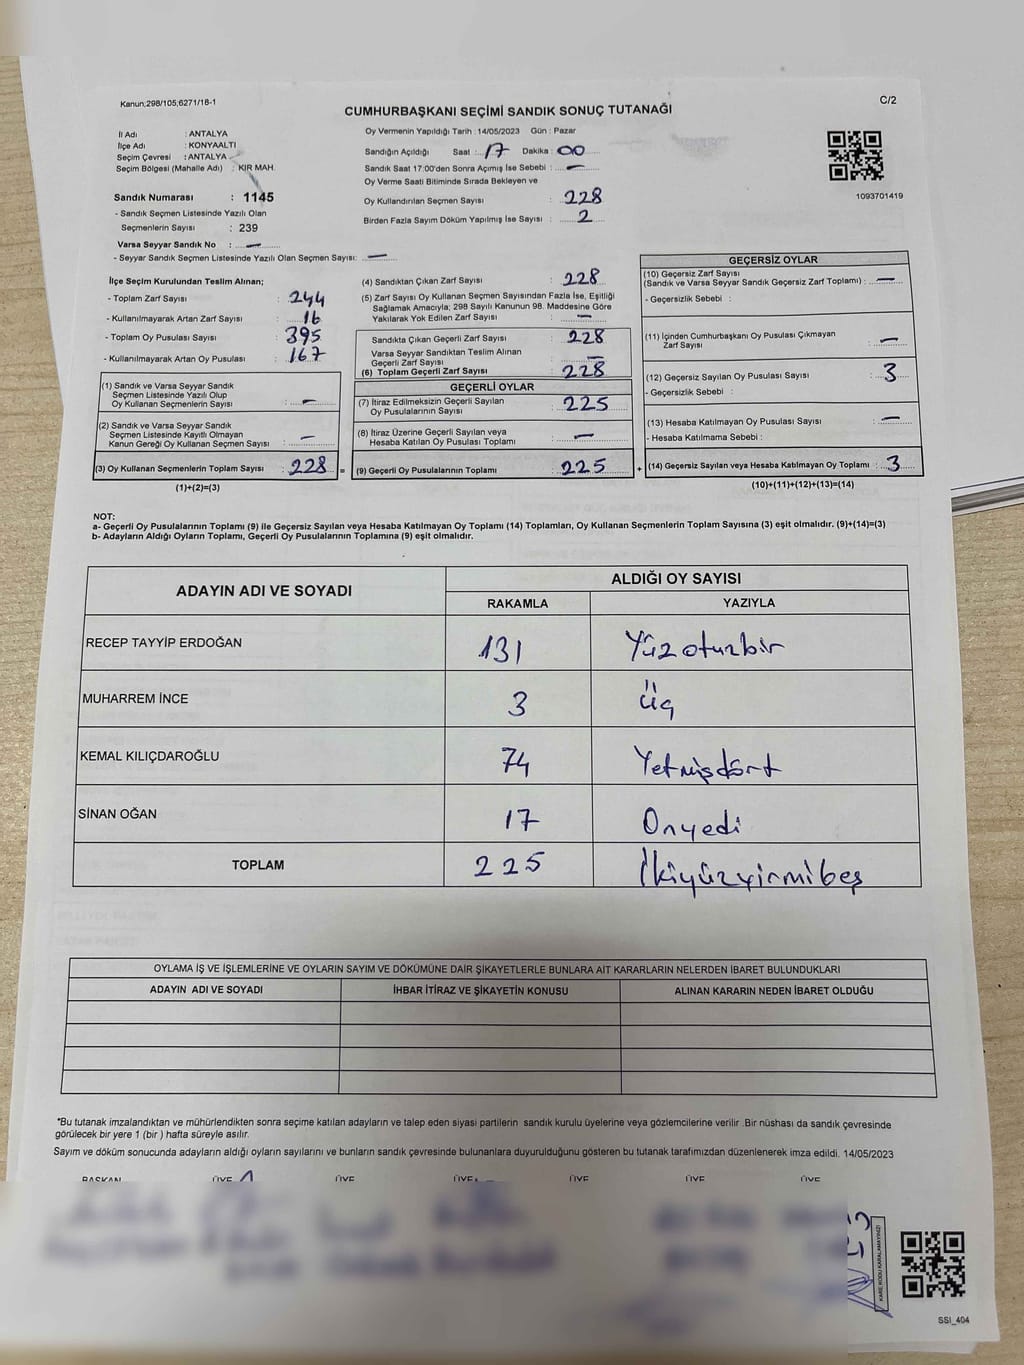 Kanun;298/105;6271/18-1
C/2
CUMHURBAŞKANI SEÇİMİ SANDIK SONUÇ TUTANAĞI
İl Adı : ANTALYA
İlçe Adı : KONYAALTI
Seçim Çevresi : ANTALYA
Seçim Bölgesi (Mahalle Adı) : KIR MAH.
Sandık Numarası : 1145
- Sandık Seçmen Listesinde Yazılı Olan
Seçmenlerin Sayısı : 239
Varsa Seyyar Sandık No : —
- Seyyar Sandık Seçmen Listesinde Yazılı Olan Seçmen Sayısı: —
Oy Vermenin Yapıldığı Tarih : 14/05/2023 Gün : Pazar
Sandığın Açıldığı Saat : 17 Dakika : 00
Sandık Saat 17:00'den Sonra Açımış İse Sebebi : —
Oy Verme Saati Bitiminde Sırada Bekleyen ve
Oy Kullandırılan Seçmen Sayısı : 228
Birden Fazla Sayım Döküm Yapılmış İse Sayısı : 2
1093701419
İlçe Seçim Kurulundan Teslim Alınan;
- Toplam Zarf Sayısı : 244
- Kullanılmayarak Artan Zarf Sayısı : 16
- Toplam Oy Pusulası Sayısı : 395
- Kullanılmayarak Artan Oy Pusulası : 167
(1) Sandık ve Varsa Seyyar Sandık
Seçmen Listesinde Yazılı Olup
Oy Kullanan Seçmenlerin Sayısı : —
(2) Sandık ve Varsa Seyyar Sandık
Seçmen Listesinde Kayıtlı Olmayan
Kanun Gereği Oy Kullanan Seçmen Sayısı : —
(3) Oy Kullanan Seçmenlerin Toplam Sayısı : 228 =
(1)+(2)=(3)
(4) Sandıktan Çıkan Zarf Sayısı : 228
(5) Zarf Sayısı Oy Kullanan Seçmen Sayısından Fazla İse, Eşitliği
Sağlamak Amacıyla; 298 Sayılı Kanunun 98. Maddesine Göre
Yakılarak Yok Edilen Zarf Sayısı : —
Sandıkta Çıkan Geçerli Zarf Sayısı : 228
Varsa Seyyar Sandıktan Teslim Alınan
Geçerli Zarf Sayısı : —
(6) Toplam Geçerli Zarf Sayısı : 228
GEÇERLİ OYLAR
(7) İtiraz Edilmeksizin Geçerli Sayılan
Oy Pusulalarının Sayısı : 225
(8) İtiraz Üzerine Geçerli Sayılan veya
Hesaba Katılan Oy Pusulası Toplamı : —
(9) Geçerli Oy Pusulalarının Toplamı : 225 +
GEÇERSİZ OYLAR
(10) Geçersiz Zarf Sayısı
(Sandık ve Varsa Seyyar Sandık Geçersiz Zarf Toplamı) : —
- Geçersizlik Sebebi :
(11) İçinden Cumhurbaşkanı Oy Pusulası Çıkmayan
Zarf Sayısı : —
(12) Geçersiz Sayılan Oy Pusulası Sayısı : 3
- Geçersizlik Sebebi :
(13) Hesaba Katılmayan Oy Pusulası Sayısı : —
- Hesaba Katılmama Sebebi :
(14) Geçersiz Sayılan veya Hesaba Katılmayan Oy Toplamı : 3
(10)+(11)+(12)+(13)=(14)
NOT:
a- Geçerli Oy Pusulalarının Toplamı (9) ile Geçersiz Sayılan veya Hesaba Katılmayan Oy Toplamı (14) Toplamları, Oy Kullanan Seçmenlerin Toplam Sayısına (3) eşit olmalıdır. (9)+(14)=(3)
b- Adayların Aldığı Oyların Toplamı, Geçerli Oy Pusulalarının Toplamına (9) eşit olmalıdır.
ADAYIN ADI VE SOYADI
ALDIĞI OY SAYISI
RAKAMLA YAZIYLA
RECEP TAYYİP ERDOĞAN 131 Yüzotuzbir
MUHARREM İNCE 3 Üç
KEMAL KILIÇDAROĞLU 74 Yetmişdört
SİNAN OĞAN 17 Onyedi
TOPLAM 225 İkiyüzyirmibeş
OYLAMA İŞ VE İŞLEMLERİNE VE OYLARIN SAYIM VE DÖKÜMÜNE DAİR ŞİKAYETLERLE BUNLARA AİT KARARLARIN NELERDEN İBARET BULUNDUKLARI
ADAYIN ADI VE SOYADI İHBAR İTİRAZ VE ŞİKAYETİN KONUSU ALINAN KARARIN NEDEN İBARET OLDUĞU
*Bu tutanak imzalandıktan ve mühürlendikten sonra seçime katılan adayların ve talep eden siyasi partilerin sandık kurulu üyelerine veya gözlemcilerine verilir .Bir nüshası da sandık çevresinde
görülecek bir yere 1 (bir ) hafta süreyle asılır.
Sayım ve döküm sonucunda adayların aldığı oyların sayılarını ve bunların sandık çevresinde bulunanlara duyurulduğunu gösteren bu tutanak tarafımızdan düzenlenerek imza edildi. 14/05/2023
BAŞKAN ÜYE ÜYE ÜYE ÜYE ÜYE ÜYE
KARE KODU KARALAMAYINIZ!
SSI_404